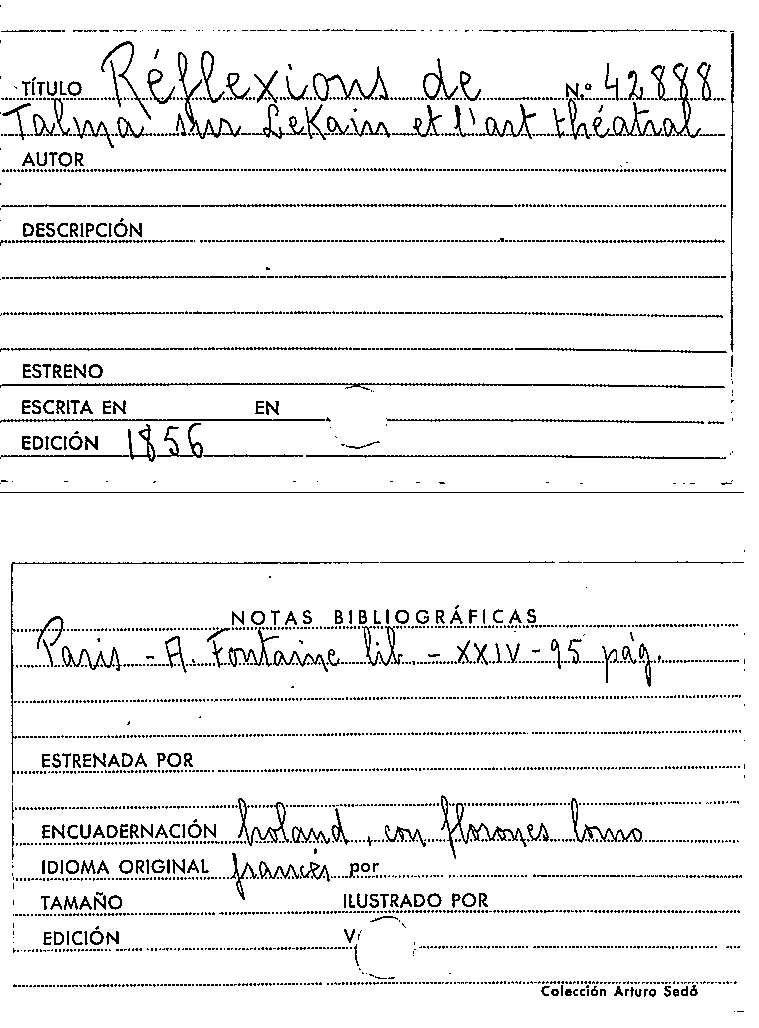 TÍTULO Réflexions de N.º 42888
Talma sur LeKain et l'art théatral
AUTOR
DESCRIPCIÓN
ESTRENO
ESCRITA EN EN
EDICIÓN 1856
NOTAS BIBLIOGRÁFICAS
Paris - A. Fontaine lib. - XXIV - 95 pág.
ESTRENADA POR
ENCUADERNACIÓN holand, con florones lomo
IDIOMA ORIGINAL francés por
TAMAÑO ILUSTRADO POR
EDICIÓN V
Colección Arturo Sedó